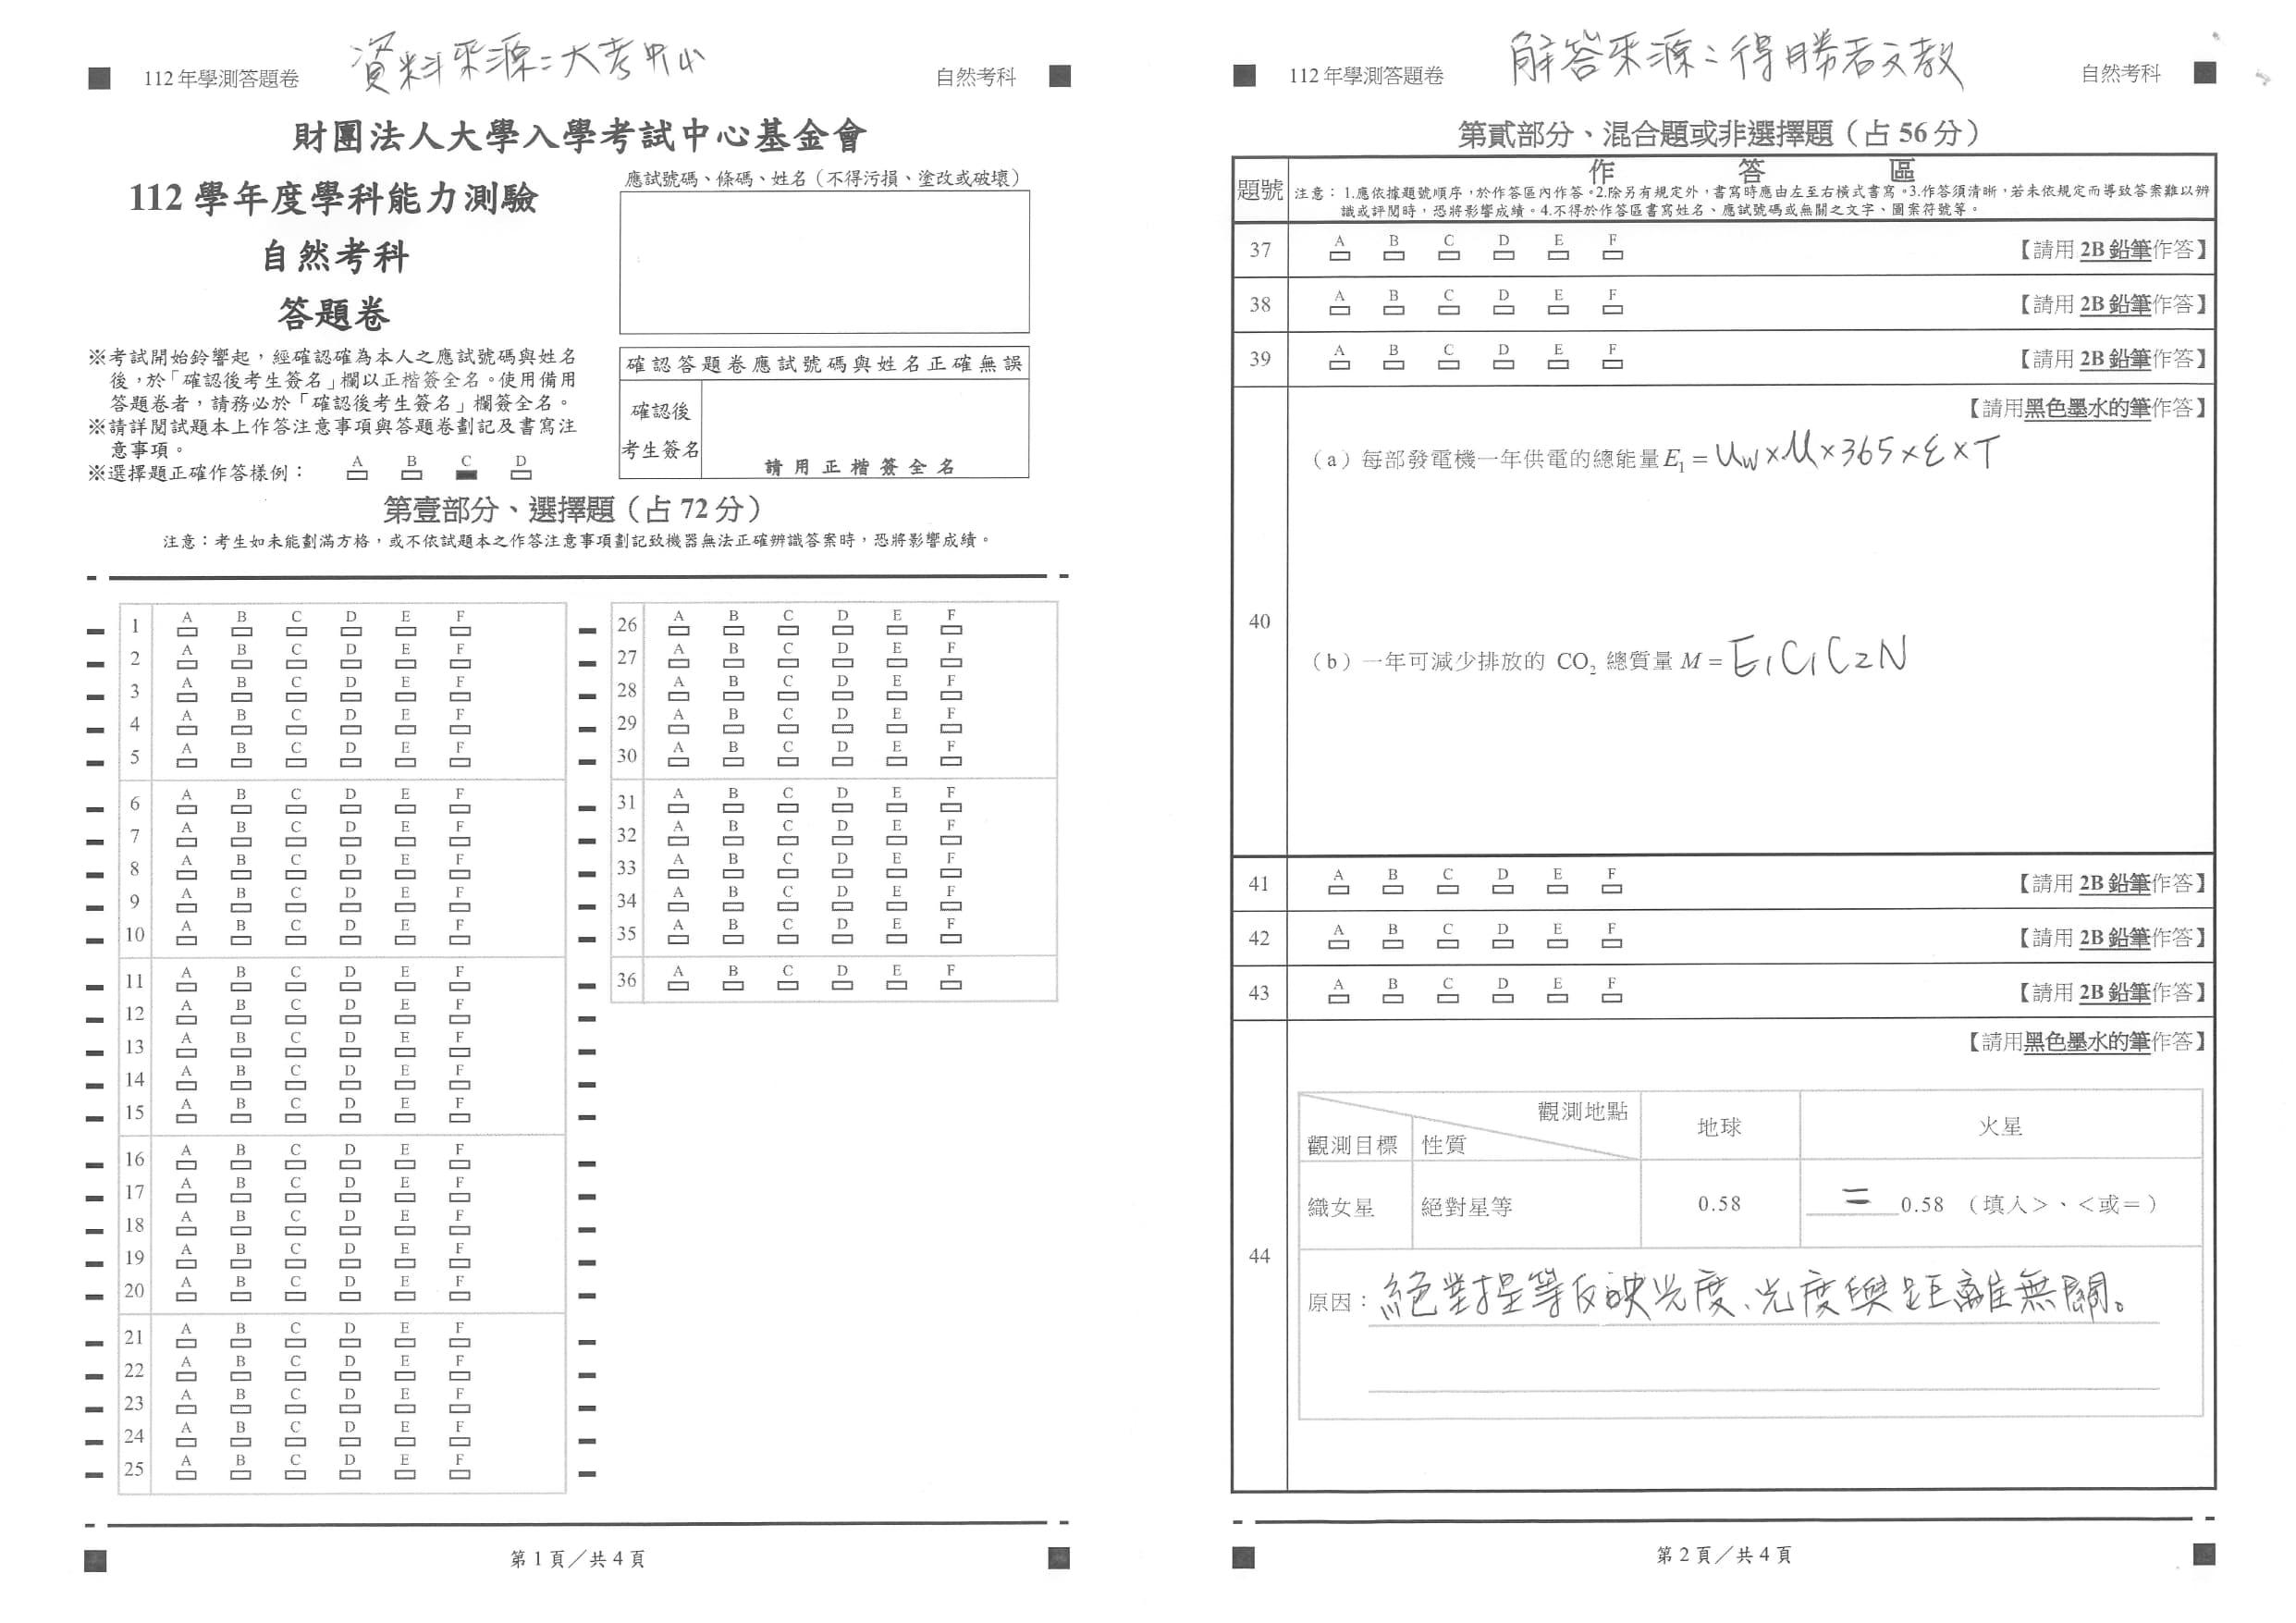 112年學測答題卷
資料來源:大考中心
自然考科
財團法人大學入學考試中心基金會
112 學年度學科能力測驗
自然考科
答題卷
應試號碼、條碼、姓名(不得污損、塗改或破壞)
※考試開始鈴響起,經確認確為本人之應試號碼與姓名
後,於「確認後考生簽名」欄以正楷簽全名。使用備用
答題卷者,請務必於「確認後考生簽名」欄簽全名。
※請詳閱試題本上作答注意事項與答題卷劃記及書寫注
意事項。
※選擇題正確作答樣例: A B C D
確認答題卷應試號碼與姓名正確無誤
確認後
考生簽名
請用正楷簽全名
第壹部分、選擇題(占 72 分)
注意:考生如未能劃滿方格,或不依試題本之作答注意事項劃記致機器無法正確辨識答案時,恐將影響成績。
1 A B C D E F
2 A B C D E F
3 A B C D E F
4 A B C D E F
5 A B C D E F
6 A B C D E F
7 A B C D E F
8 A B C D E F
9 A B C D E F
10 A B C D E F
11 A B C D E F
12 A B C D E F
13 A B C D E F
14 A B C D E F
15 A B C D E F
16 A B C D E F
17 A B C D E F
18 A B C D E F
19 A B C D E F
20 A B C D E F
21 A B C D E F
22 A B C D E F
23 A B C D E F
24 A B C D E F
25 A B C D E F
26 A B C D E F
27 A B C D E F
28 A B C D E F
29 A B C D E F
30 A B C D E F
31 A B C D E F
32 A B C D E F
33 A B C D E F
34 A B C D E F
35 A B C D E F
36 A B C D E F
第 1 頁/共 4 頁
112年學測答題卷
解答來源:得勝者文教
自然考科
第貳部分、混合題或非選擇題(占 56 分)
題號
作答區
注意:1.應依據題號順序,於作答區內作答。2.除另有規定外,書寫時應由左至右橫式書寫。3.作答須清晰,若未依規定而導致答案難以辨
識或評閱時,恐將影響成績。4.不得於作答區書寫姓名、應試號碼或無關之文字、圖案符號等。
37 A B C D E F 【請用 2B 鉛筆作答】
38 A B C D E F 【請用 2B 鉛筆作答】
39 A B C D E F 【請用 2B 鉛筆作答】
40
【請用黑色墨水的筆作答】
(a)每部發電機一年供電的總能量 E₁ = Uw×μ×365×ε×T
(b)一年可減少排放的 CO₂ 總質量 M = E₁C₁C₂N
41 A B C D E F 【請用 2B 鉛筆作答】
42 A B C D E F 【請用 2B 鉛筆作答】
43 A B C D E F 【請用 2B 鉛筆作答】
44
【請用黑色墨水的筆作答】
觀測地點
觀測目標 性質 地球 火星
織女星 絕對星等 0.58 = 0.58 (填入>、<或=)
原因:絕對星等反映光度、光度與距離無關。
第 2 頁/共 4 頁